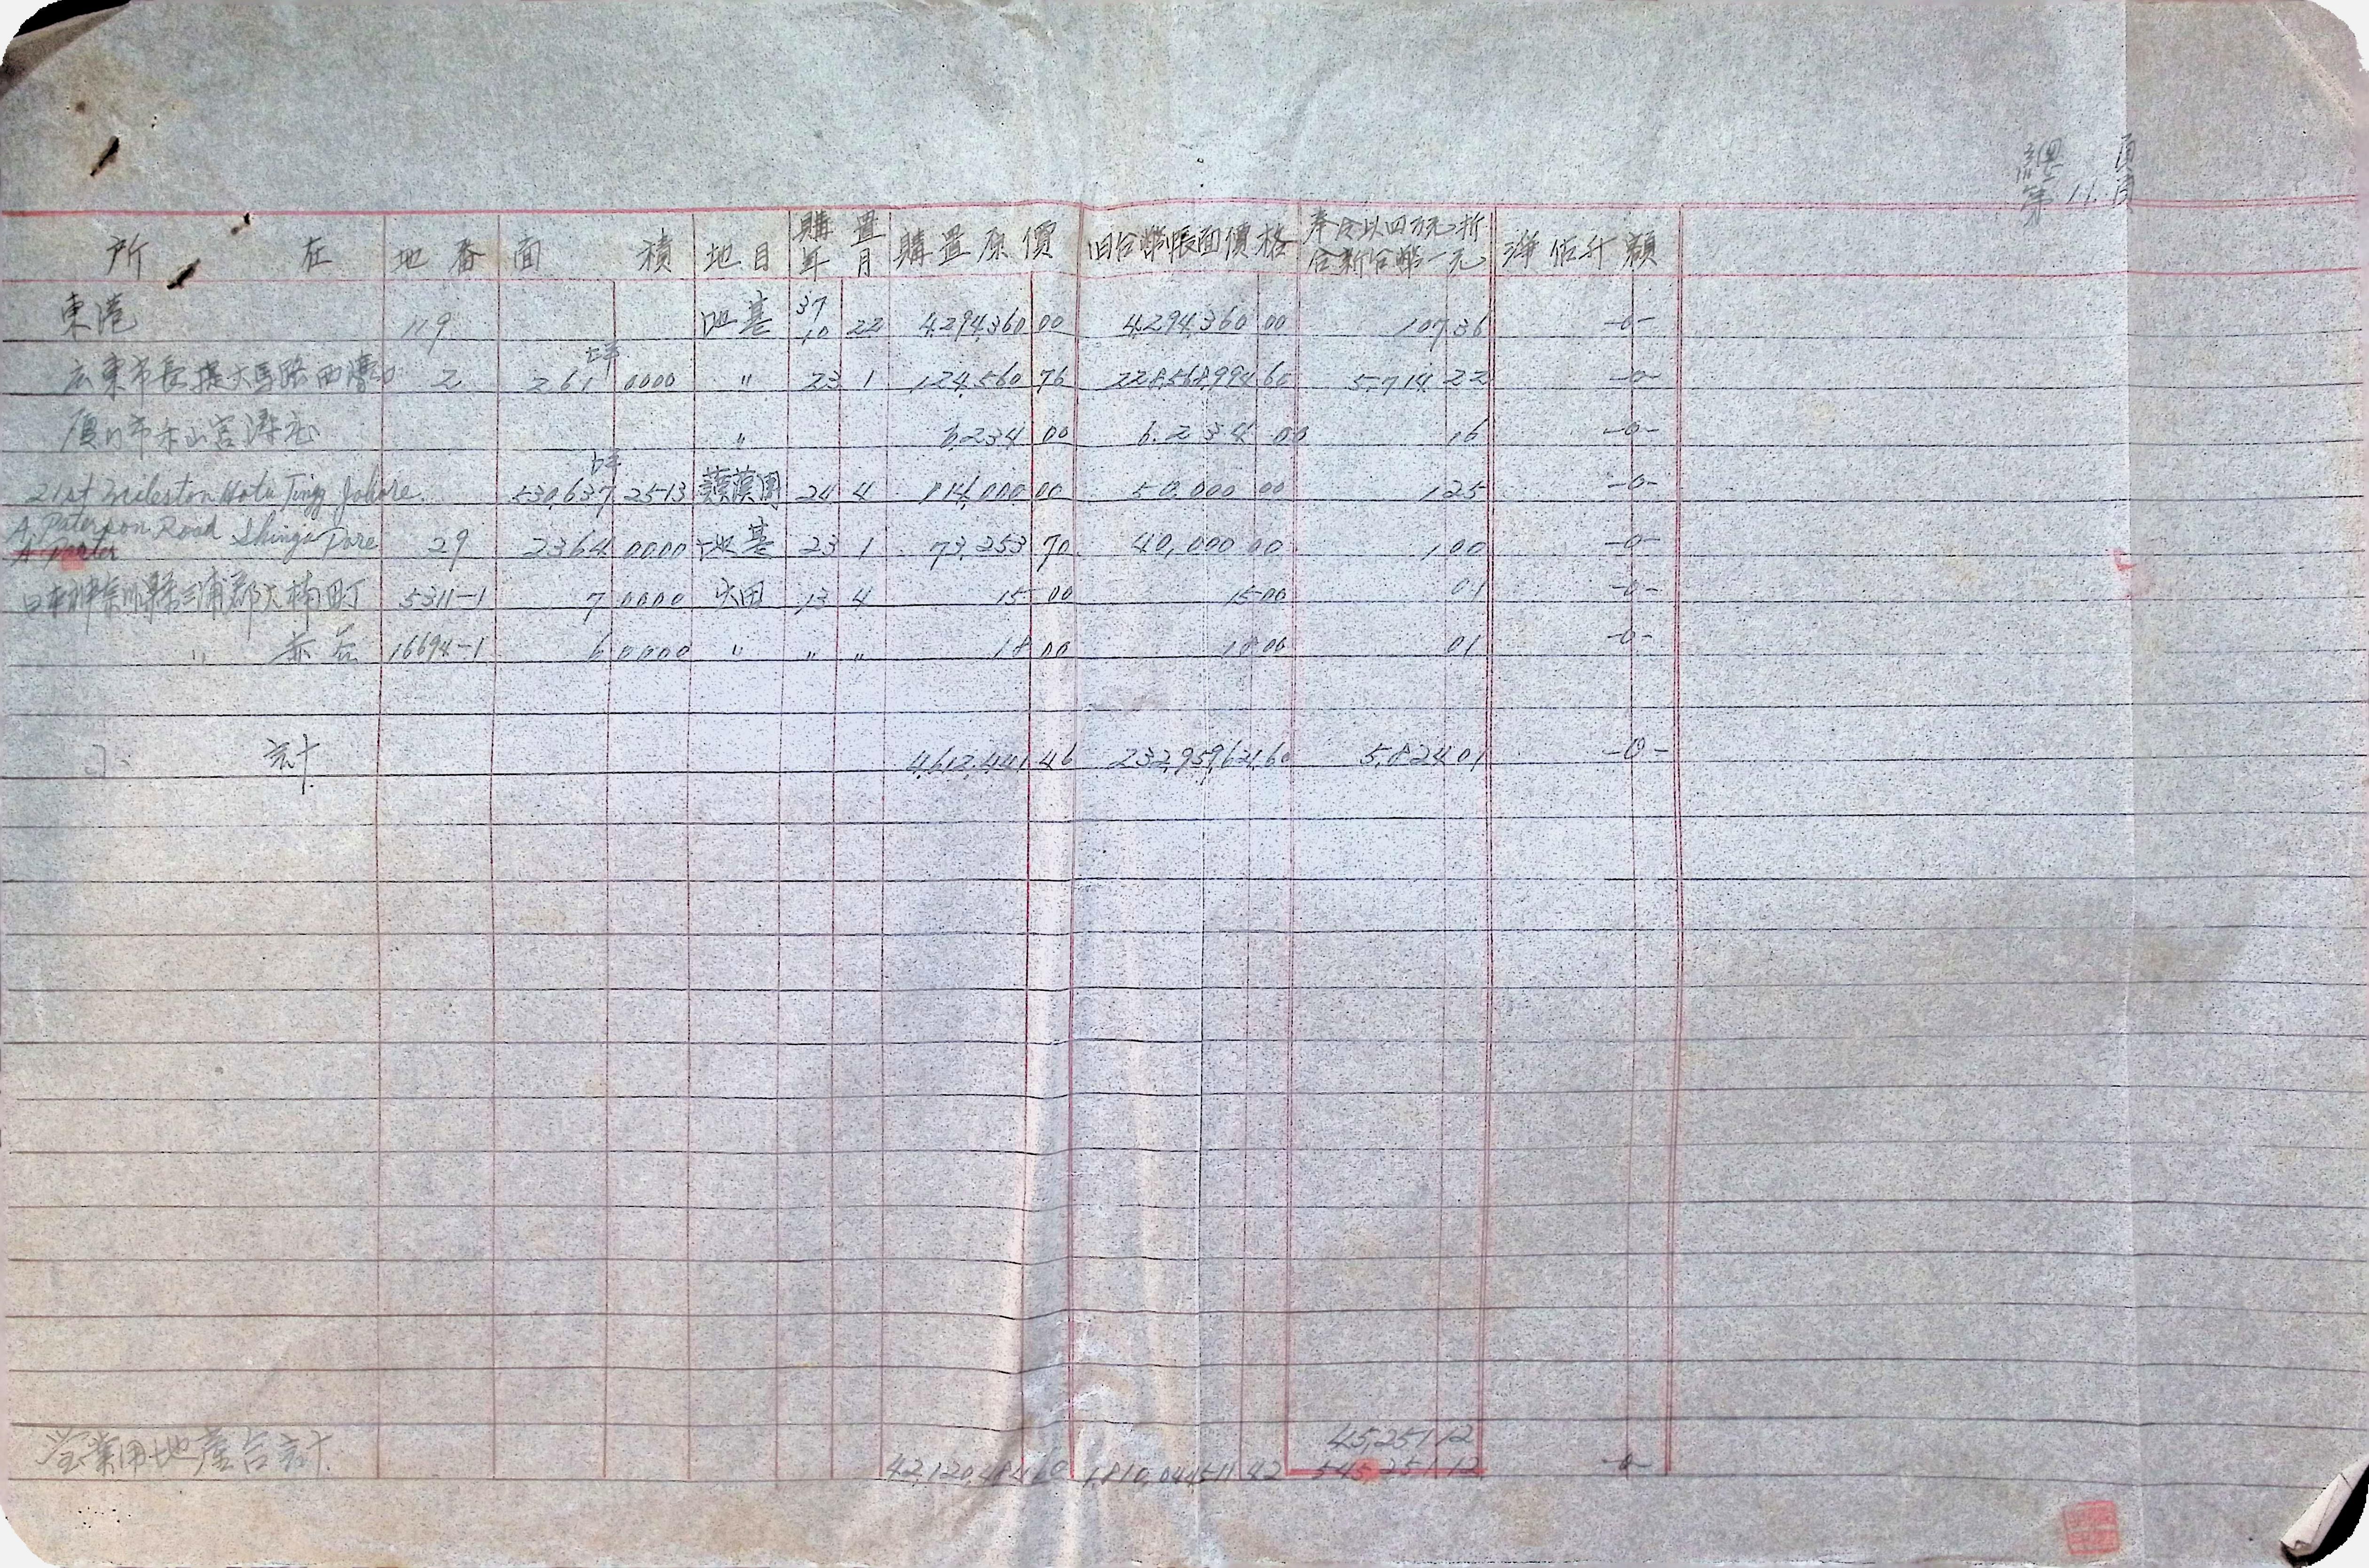 總 頁
第 11. 頁
所 在 地番 面 積 地目 購置年月 購置原價 旧台幣帳面價格 奉令以四万元折合新台幣一元 淨估升額
東港 119 地基 37 10 22 4,294,360 00 4,294,360 00 107 36 -0-
広東市長堤大馬路西濠口 2 261坪 0000 〃 23 1 124,560 76 228,568,994 60 5,714 22 -0-
厦门市 〃 6,234 00 6,234 00 16 -0-
21st Mileston Kota Tingg Johore. 530,637坪 2513 護謨園 24 4 114,000 00 50,000 00 1 25 -0-
A, Paterson Road Shinga Pore 29 2364 0000 地基 23 1 73,253 70 40,000 00 1 00 -0-
日本神奈川縣三浦郡大楠町 5311-1 7 0000 山田 13 4 15 00 15 00 01 -0-
〃 16694-1 6 0000 〃 〃 〃 18 00 18 00 01 -0-
計 4,612,441 46 232,959,621 60 5,824 01 -0-
45,251 12
營業用地產合計 42,120,484 60 1,810,044,511 42 545,251 12 -0-